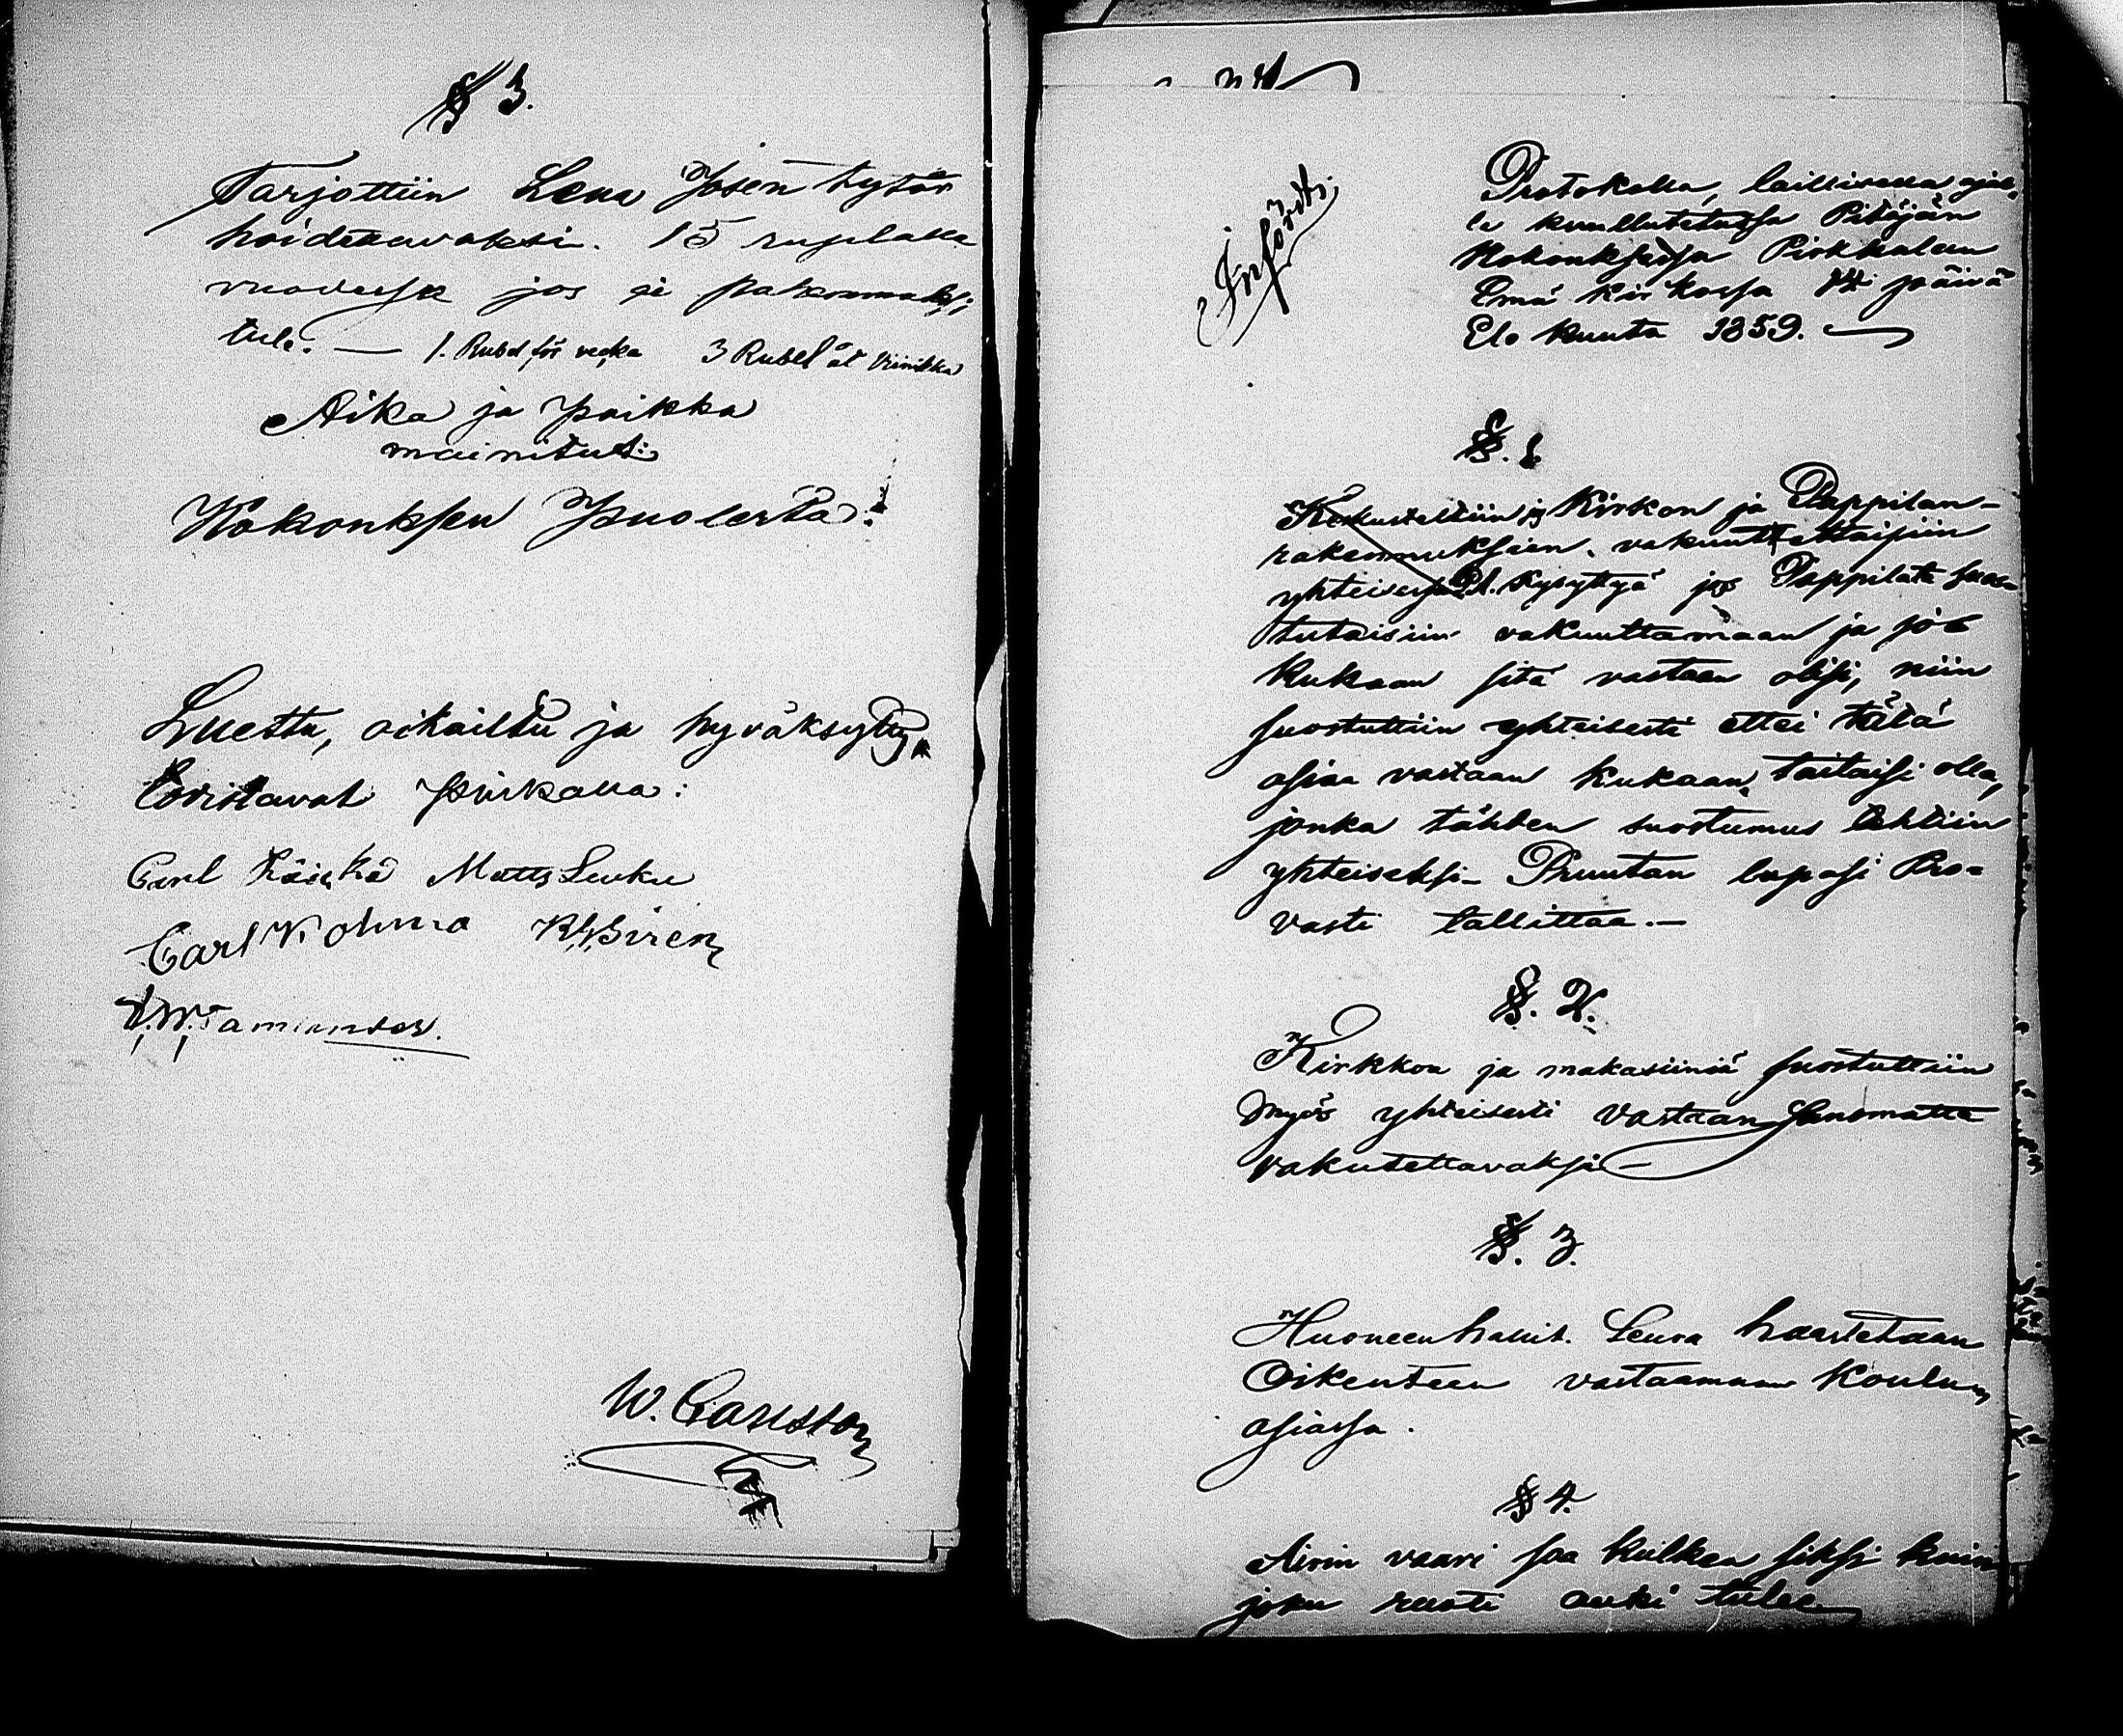 § 3.
Tarjottiin Lena Josen tytär
hoidettavaksi. 15 ruplalla
vuodessa jos ei pahemmaksi
tule. — 1. Rubel för vecka 3 Rubel åt Viinikka
Aika ja paikka
mainitut:
Kokouksen puolesta:
Luettu, oikaistu ja hyväksytty,
todistavat paikalla:
Carl Räikkä Matts Leuku
Carl Kolma K. H. Siren
W. Carlsson
Infördt.
Protokolla, laillisella ajal-
la kuullutetussa Pitäjän
Kokouksessa Pirkkalan
Emä kirkossa 14 päivä
Elo kuuta 1859. —
§. 1
Keskusteltiin jos Kirkon ja Pappilan-
rakennuksien vakuutettaisiin
yhteisesti Kysyttyä jos Pappilata suos-
tutaisiin vakuuttamaan ja jos
kukaan sitä vastaan olisi, niin
suostuttiin yhteisesti ettei tätä
asiaa vastaan kukaan taitaisi olla,
jonka tähden suostumus tehtiin
yhteiseksi- Pruutan lupasi Pro-
vasti tallittaa.—
§. 2.
Kirkkoa ja makasiiniä suostuttiin
myös yhteisesti vastaan sanomatta
vakutettavaksi —
§. 3.
Huoneenhallit. Seura haastetaan
Oikeuteen vastaamaan Koulun
asiassa.
§ 4.
vaari saa kulkea siksi kuin
joku ruoti auki tulee